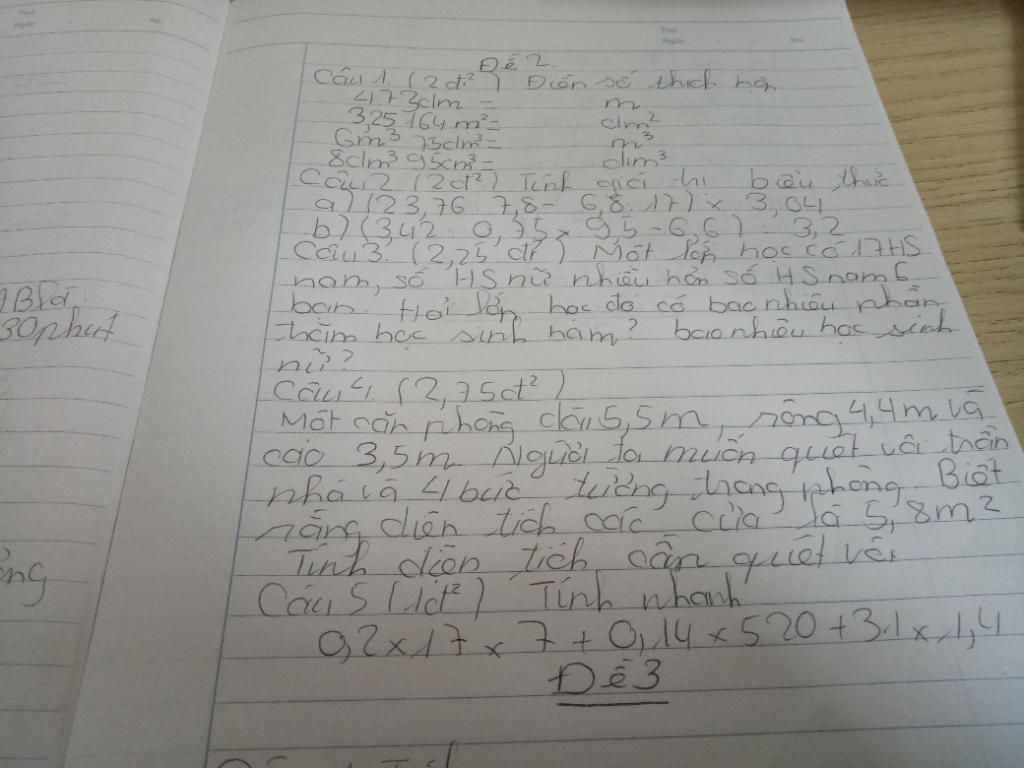 Thứ
Ngày
No.
Thứ
Ngày
No.
1 Bài
30 phút
Đề 2
Câu 1. (2đ²) Điền số thích hợp
473dm = m
3,25164m² = dm²
6m³ 73dm³ = m³
8dm³ 95cm³ = dm³
Câu 2 (2đ²) Tính giá trị biểu thức
a) (23,76 : 7,8 - 6,8 : 17) × 3,04
b) (3,42 : 0,75 × 9,5 - 6,6) : 3,2
Câu 3. (2,25 đ²) Một lớp học có 17HS
nam, số HS nữ nhiều hơn số HS nam 6
bạn. Hỏi lớp học đó có bao nhiêu phần
trăm học sinh nam? bao nhiêu học sinh
nữ?
Câu 4. (2,75đ²)
Một căn phòng dài 5,5m, rộng 4,4m và
cao 3,5m. Người ta muốn quét vôi trần
nhà và 4 bức tường trong phòng Biết
rằng diện tích các cửa là 5,8m²
Tính diện tích cần quét vôi
Câu 5 (1đ²) Tính nhanh
0,2 × 17 × 7 + 0,14 × 520 + 31 × 1,4
Đề 3